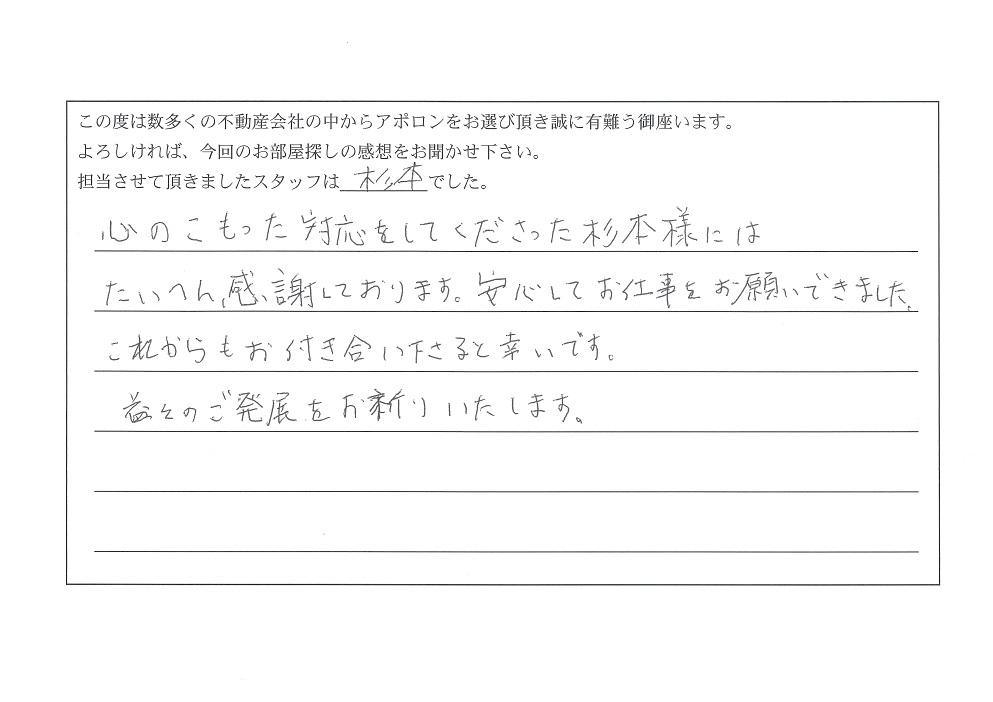 この度は数多くの不動産会社の中からアポロンをお選び頂き誠に有難う御座います。
よろしければ、今回のお部屋探しの感想をお聞かせ下さい。
担当させて頂きましたスタッフは 杉本 でした。
心のこもった対応をしてくださった杉本様には
たいへん感謝しております。安心してお仕事をお願いできました。
これからもお付き合い下さると幸いです。
益々のご発展をお祈りいたします。